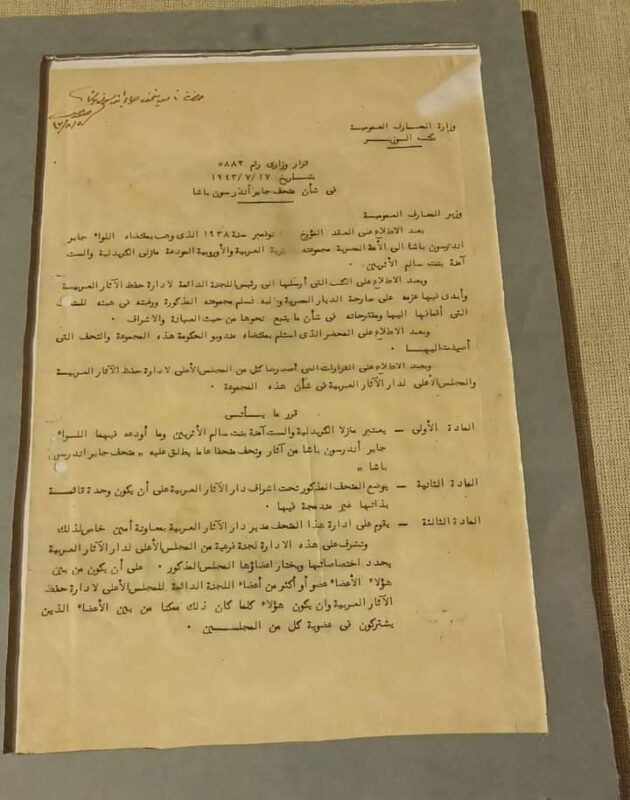 وزارة المعارف العمومية
مكتب الوزير
قرار وزارى رقم ٥٨٨٢
بتاريخ ١٩٤٣/٧/١٧
فى شأن متحف جاير أندرسون باشا
وزير المعارف العمومية
بعد الاطلاع على العقد المؤرخ نوفمبر سنة ١٩٣٨ الذى وهب بمقتضاه اللواء جاير
اندرسون باشا الى الأمة المصرية مجموعته العربية والأوروبية المودعة منزلى الكريدلية والست
آمنة بنت سالم الأثريين .
وبعد الاطلاع على الكتب التى أرسلها الى رئيس اللجنة الدائمة لادارة حفظ الآثار العربية
وأبدى فيها عزمه على مبارحة الديار المصرية تسلم مجموعته المذكورة ورغبته فى هبته
التى أضافها اليها ومقترحاته فى شأن ما يتبع نحوها من حيث الصيانة والاشراف .
وبعد الاطلاع على المحضر الذى استلم بمقتضاه مندوبو الحكومة هذه المجموعة والتحف التى
أضيفت اليها .
وبعد الاطلاع على القرارات التى أصدرها كل من المجلس الأعلى لادارة حفظ الآثار العربية
والمجلس الأعلى لدار الآثار العربية فى شأن هذه المجموعة .
قرر ما يأتى
المادة الأولى – يعتبر منزلا الكريدلية والست آمنة بنت سالم الأثريين وما أودعه فيهما اللواء
جاير أندرسون باشا من آثار وتحف متحفا عاما يطلق عليه " متحف جاير اندرسون
باشا "
المادة الثانية – يوضع المتحف المذكور تحت اشراف دار الآثار العربية على أن يكون وحدة قائمة
بذاتها غير مندمجة فيها .
المادة الثالثة – يقوم على ادارة هذا المتحف مدير دار الآثار العربية بمعاونة أمين خاص لذلك
وتشرف على هذه الادارة لجنة فرعية من المجلس الأعلى لدار الآثار العربية
يحدد اختصاصاتها ويختار اعضاؤها المجلس المذكور . على أن يكون من بين
هؤلاء الأعضاء عضو أو أكثر من أعضاء اللجنة الدائمة للمجلس الأعلى لادارة حفظ
الآثار العربية وان يكون هؤلاء كلما كان ذلك ممكنا من بين الأعضاء الذين
يشتركون فى عضوية كل من المجلسين .